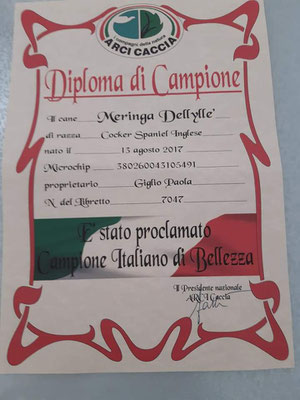 i compagni della natura
ARCI CACCIA
Diploma di Campione
Il cane Meringa Dellylle'
di razza Cocker Spaniel Inglese
nato il 13 agosto 2017
Microchip 380260043105491
proprietario Giglio Paola
N. del Libretto 7047
E' stato proclamato
Campione Italiano di Bellezza
Il Presidente nazionale
ARCI Caccia